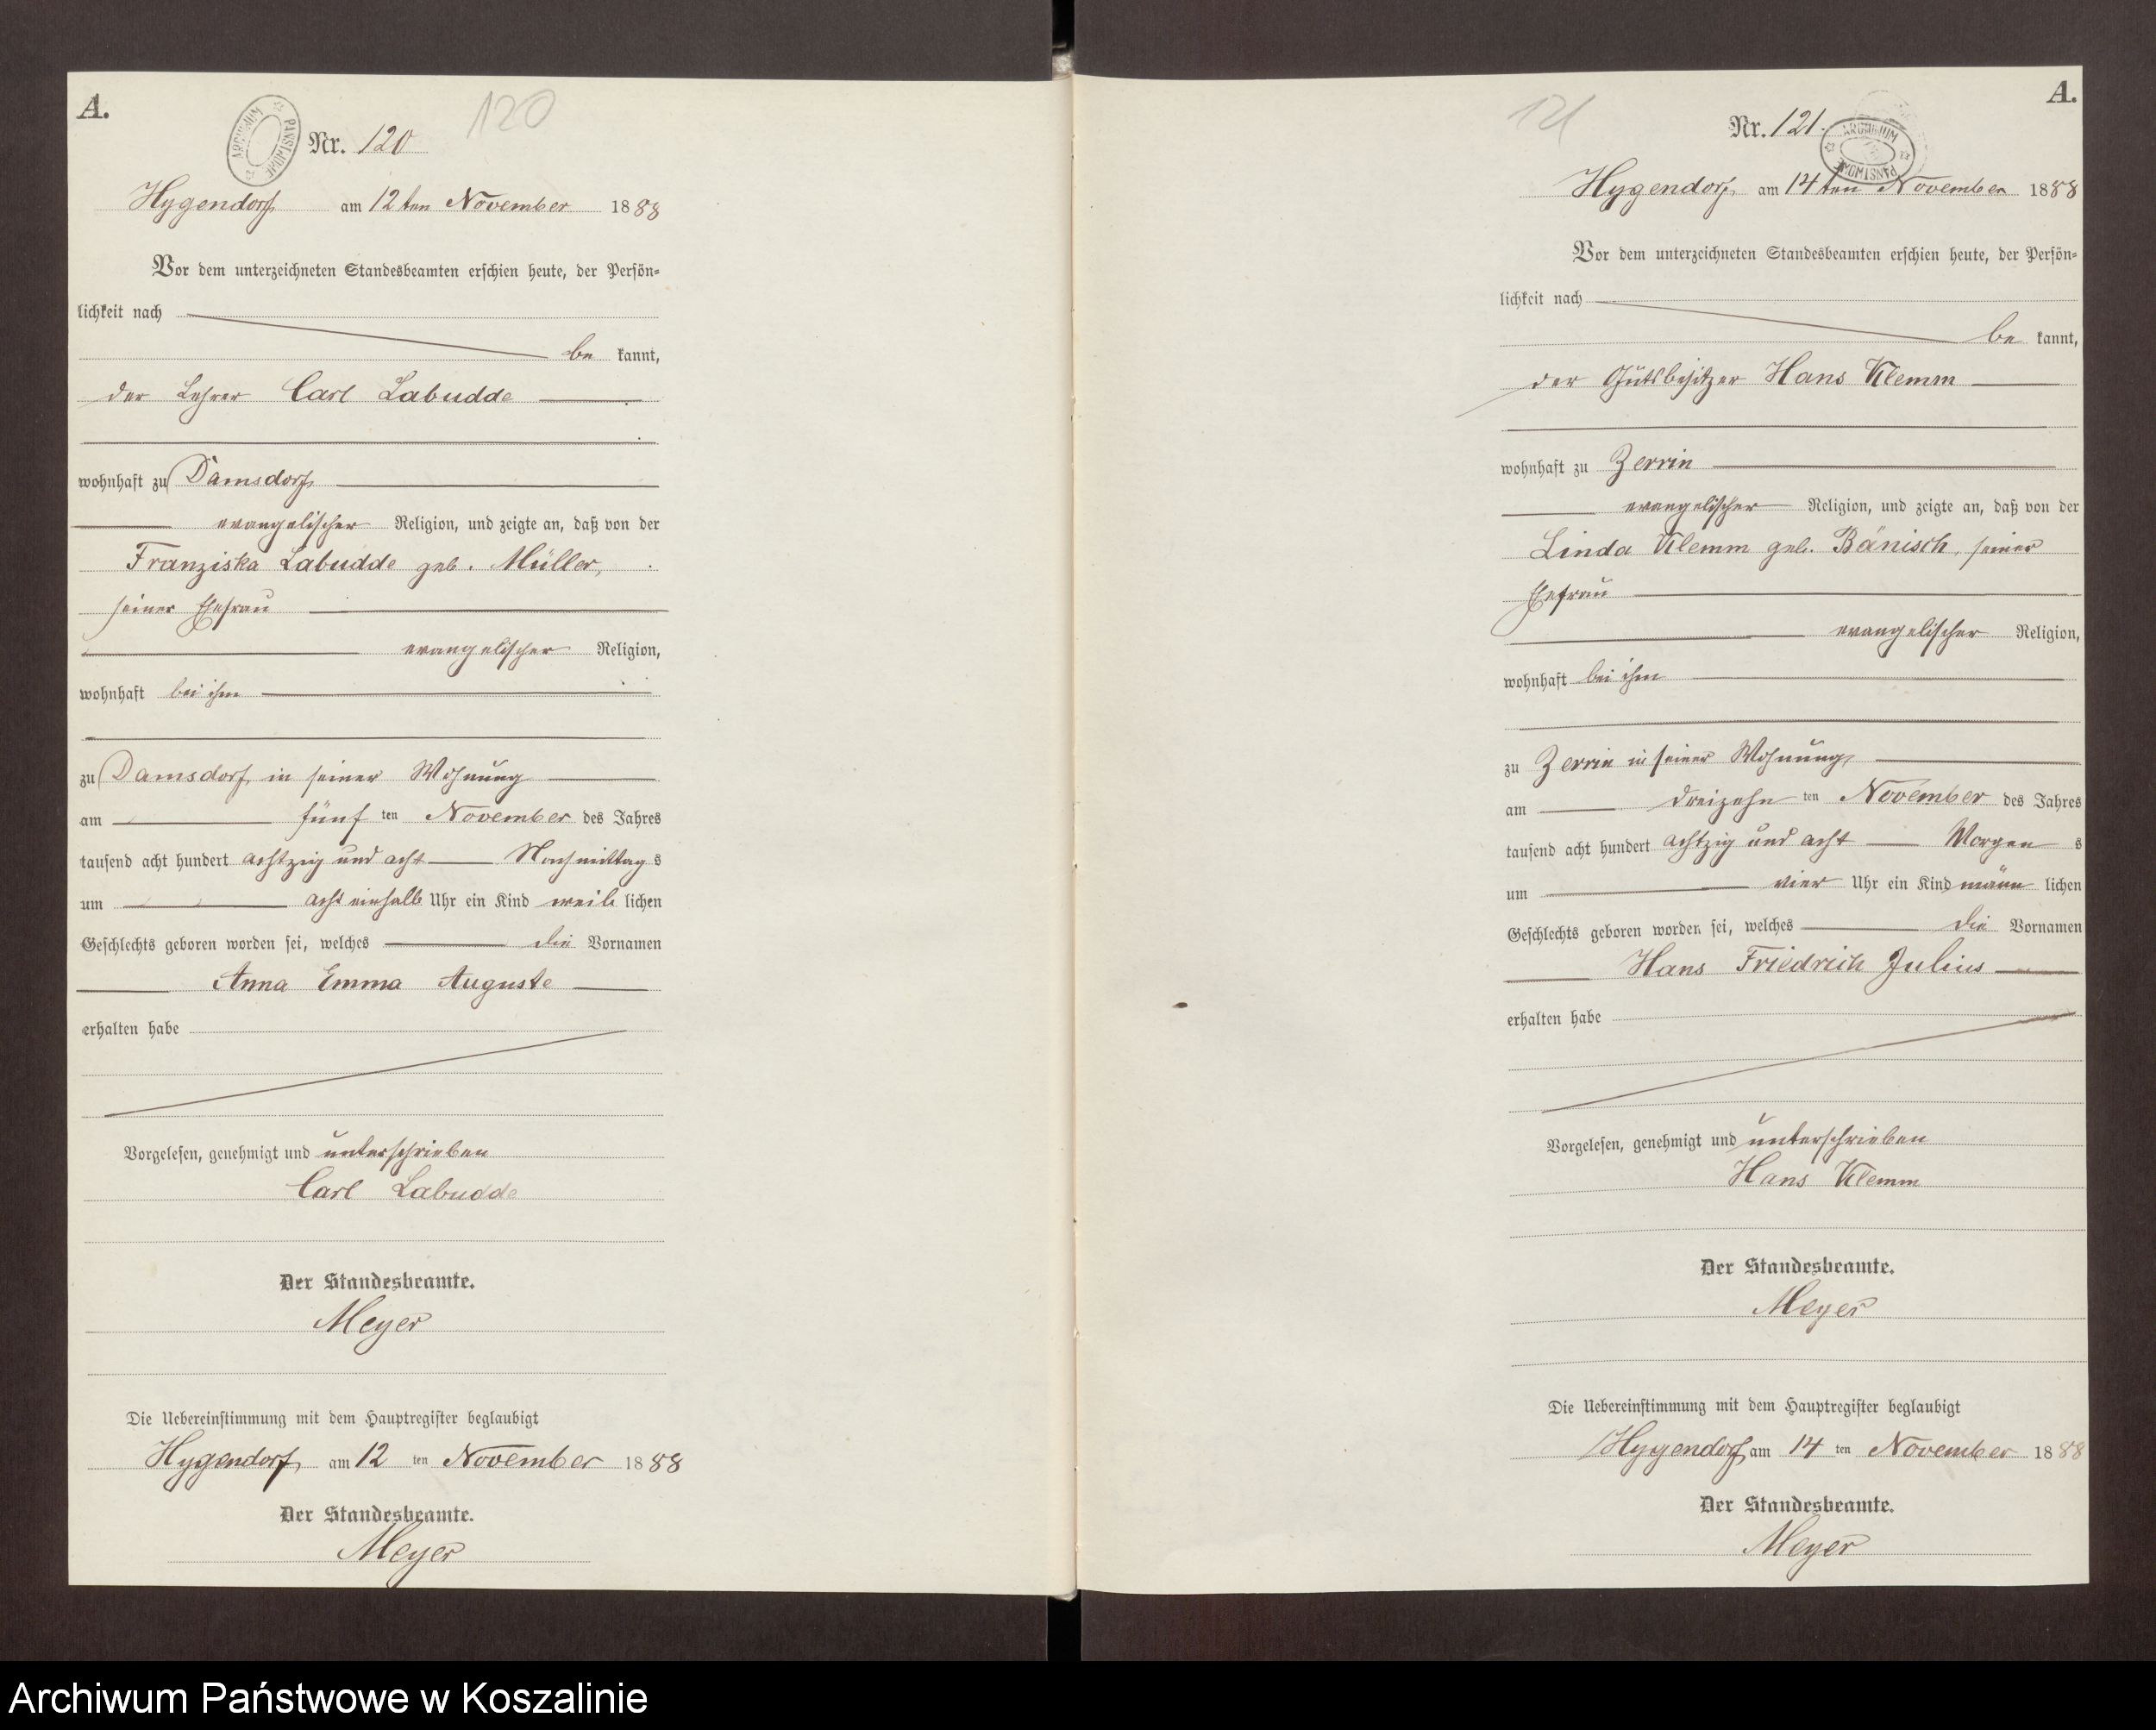 A.
ARCHIWUM PAŃSTWOWE
120
Nr. 120
Hygendorf am 12ten November 1888
Vor dem unterzeichneten Standesbeamten erschien heute, der Persön-
lichkeit nach
be kannt,
der Lehrer Carl Labudde
wohnhaft zu Damsdorf
evangelischer Religion, und zeigte an, daß von der
Franziska Labudde geb. Müller,
seiner Ehefrau
evangelischer Religion,
wohnhaft bei ihm
zu Damsdorf, in seiner Wohnung
am fünf ten November des Jahres
tausend acht hundert achtzig und acht Nachmittag s
um acht einhalb Uhr ein Kind weib lichen
Geschlechts geboren worden sei, welches die Vornamen
Anna Emma Auguste
erhalten habe
Vorgelesen, genehmigt und unterschrieben
Carl Labudde
Der Standesbeamte.
Meyer
Die Uebereinstimmung mit dem Hauptregister beglaubigt
Hygendorf, am 12 ten November 1888
Der Standesbeamte.
Meyer
A.
121
Nr. 121.
ARCHIWUM PAŃSTWOWE
Hygendorf, am 14ten November 1888
Vor dem unterzeichneten Standesbeamten erschien heute, der Persön-
lichkeit nach
be kannt,
der Gutsbesitzer Hans Klemm
wohnhaft zu Zerrin
evangelischer Religion, und zeigte an, daß von der
Linda Klemm geb. Bänisch, seiner
Ehefrau
evangelischer Religion,
wohnhaft bei ihm
zu Zerrin in seiner Wohnung,
am dreizehn ten November des Jahres
tausend acht hundert achtzig und acht Morgen s
um vier Uhr ein Kind männ lichen
Geschlechts geboren worden sei, welches die Vornamen
Hans Friedrich Julius
erhalten habe
Vorgelesen, genehmigt und unterschrieben
Hans Klemm
Der Standesbeamte.
Meyer
Die Uebereinstimmung mit dem Hauptregister beglaubigt
Hygendorf, am 14 ten November 1888
Der Standesbeamte.
Meyer
Archiwum Państwowe w Koszalinie